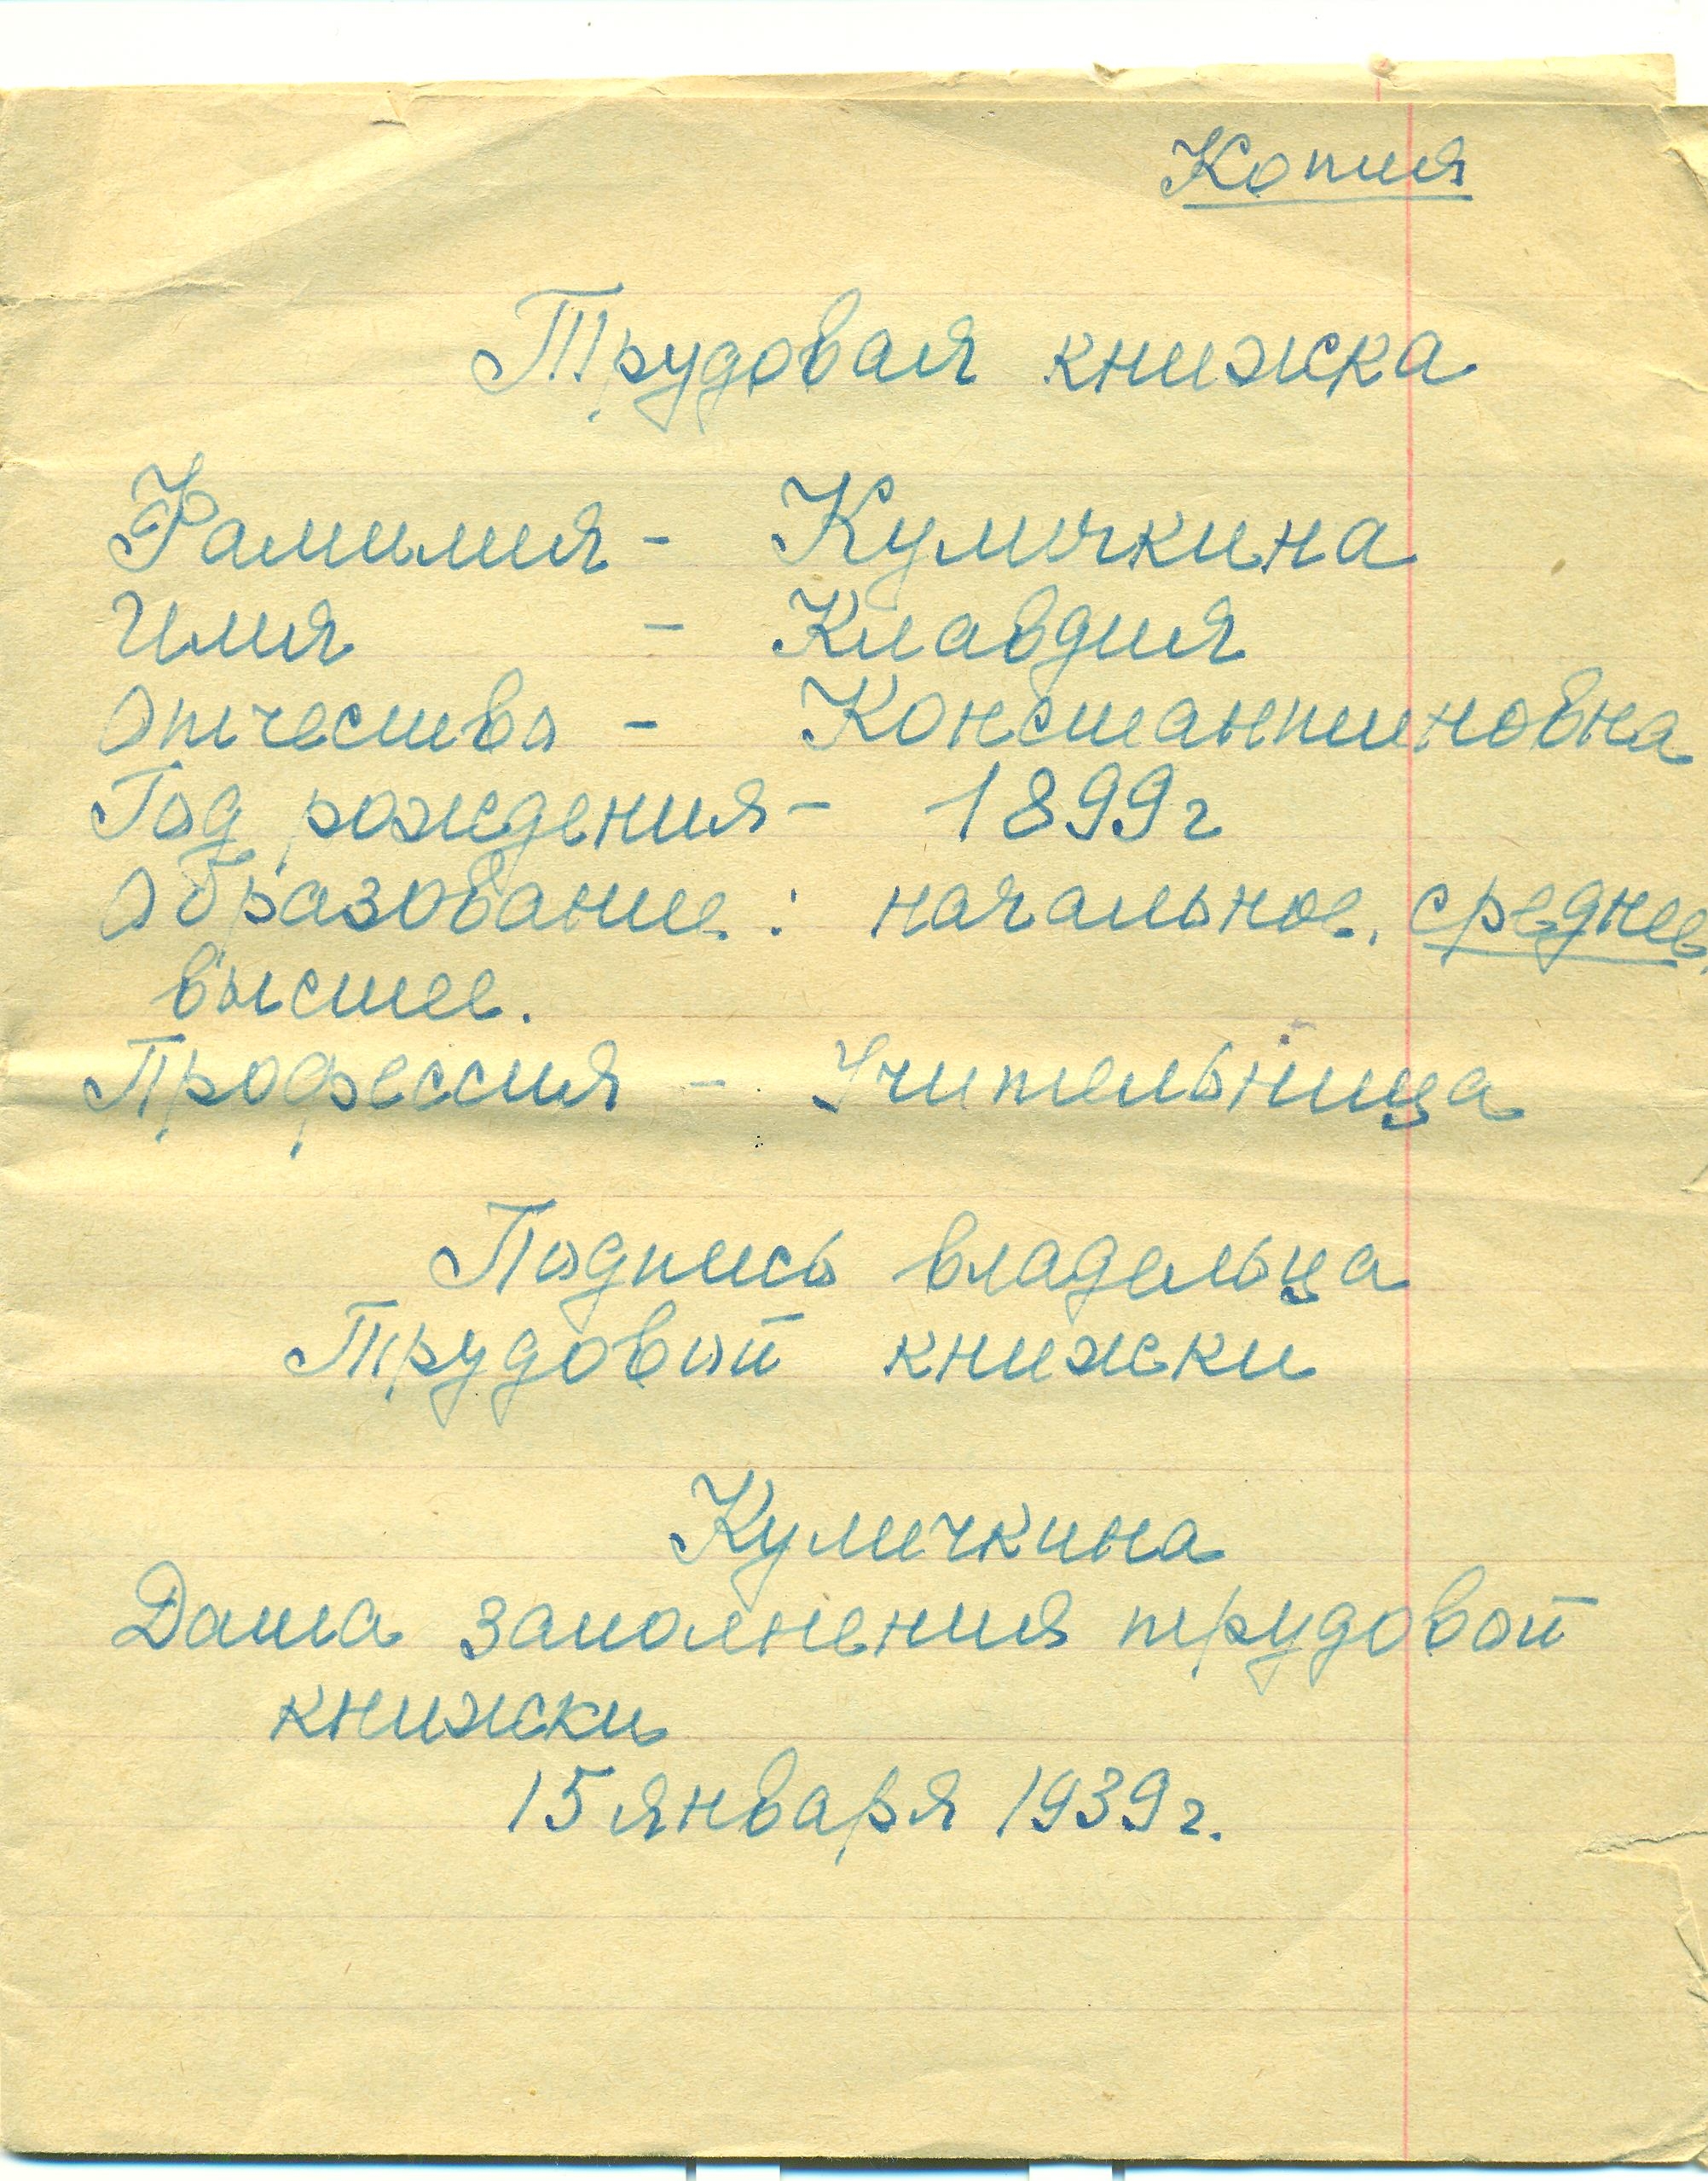 Копия
Трудовая книжка
Фамилия - Куличкина
Имя - Клавдия
Отчество - Константиновна
Год рождения - 1899г
Образование: начальное, среднее,
высшее.
Профессия - Учительница
Подпись владельца
Трудовой книжки
Куличкина
Дата заполнения трудовой
книжки
15 января 1939г.